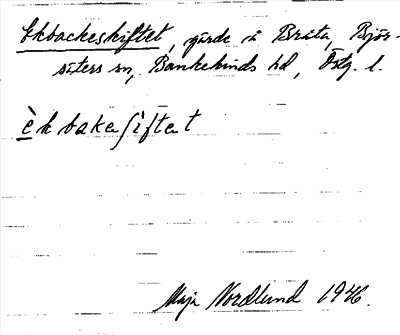 Ekbackeskiftet, gärde å Bråta, Björ-
säters sn, Bankekinds hd, Östg. l.
è k bakaʃìftat
Maja Nordlund 1946.